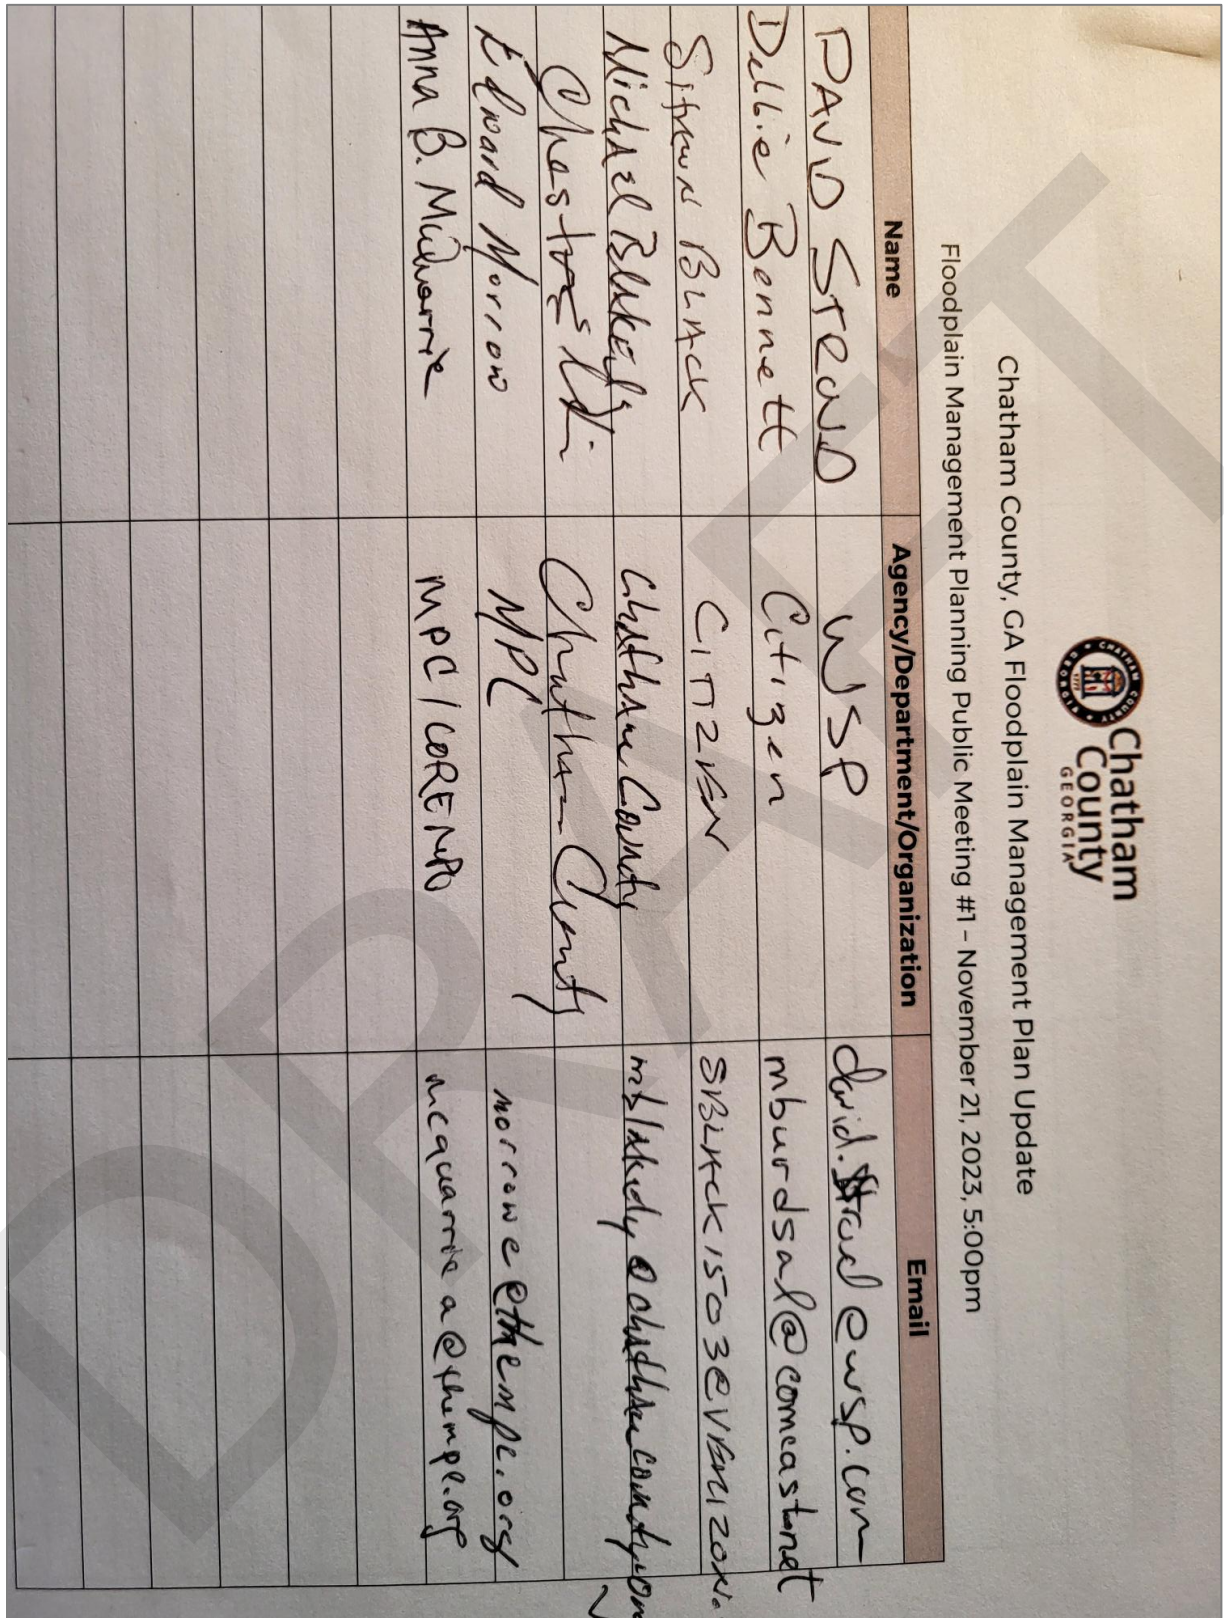 Chatham
County
GEORGIA
CHATHAM COUNTY
GEORGIA
Chatham County, GA Floodplain Management Plan Update
Floodplain Management Planning Public Meeting #1 – November 21, 2023, 5:00pm
Name Agency/Department/Organization Email
DAVID STROUD WSP david.stroud@wsp.com
Debbie Bennett Citizen mburdsal@comcast.net
Steven BLACK CITIZEN SBLACK1503@VERIZON.
Michael Blakely Chatham County mblakely@chathamcounty.org
Chatham County
Edward Morrow MPC morrowe@thempc.org
Anna B. McQuarrie MPC/CORE MPO mcquarriea@thempc.org
DRAFT